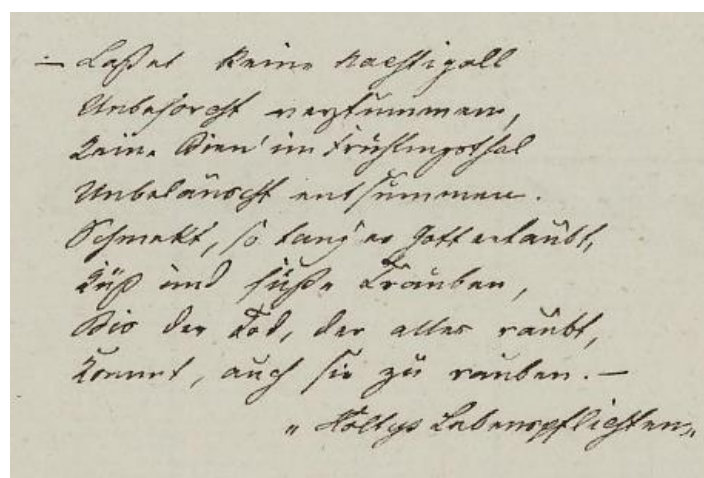 — Laßet keine Nachtigall
Unbehorcht verstummen,
Keine Bien' im Frühlingsthal
Unbelauscht entsummen.
Schmekt, so lang es Gott erlaubt,
Kuß und süße Trauben,
Bis der Tod, der alles raubt,
Kommt, auch sie zu rauben. —
„Höltys Lebenspflichten„